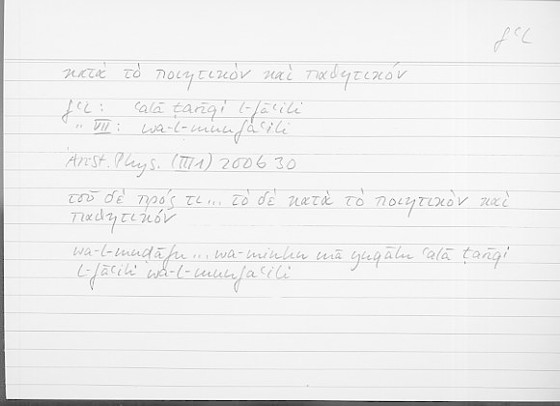 fʿl
κατὰ τὸ ποιητικὸν καὶ παθητικόν
fʿl : ʿalā ṭarīqi l-fāʿili
" VII : wa-l-munfaʿili
Arist. Phys. (III 1) 200b 30
τοῦ δὲ πρός τι... τὸ δὲ κατὰ τὸ ποιητικὸν καὶ
παθητικόν
wa-l-muḍāfu ... wa-minhu mā yuqālu ʿalā ṭarīqi
l-fāʿili wa-l-munfaʿili